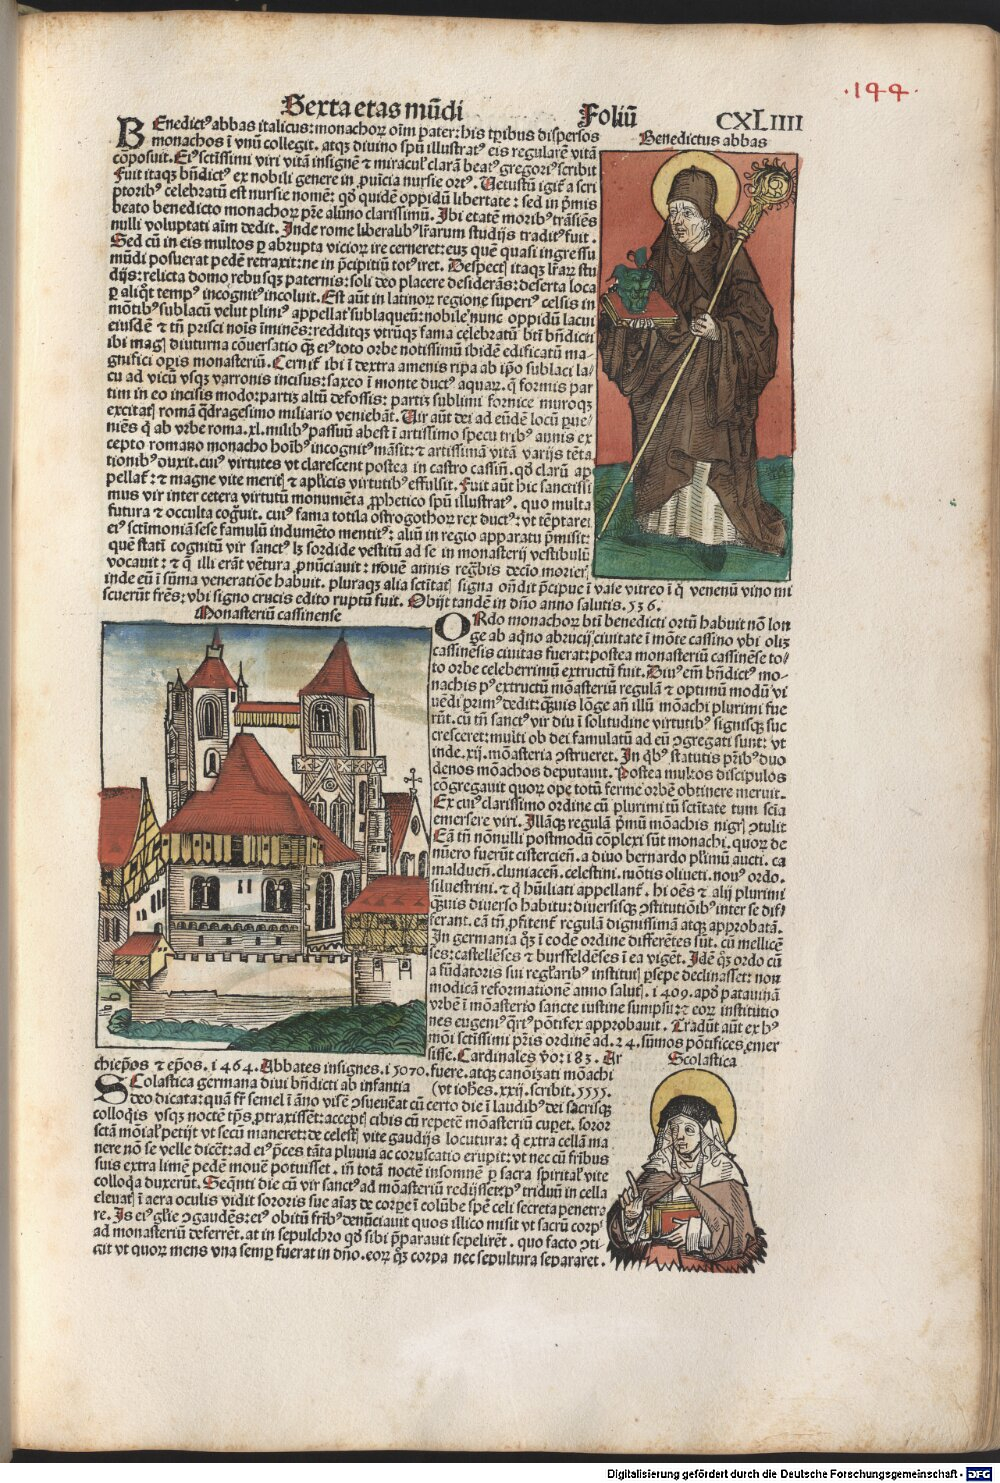 ·144·
Sexta etas mūdi Foliū CXLIIII
BEnedictꝰ abbas italicus: monachoꝝ oīm pater: his tribus dispersos
monachos ī vnū collegit. atqꝫ diuino spū illustratꝰ eis regularē vitā
cōposuit. Eiꝰ sctīssimi viri vitā insignē ⁊ miraculꝭ clarā beatꝰ gregoriꝰ scribit
Fuit itaqꝫ bn̄dictꝰ ex nobili genere in ꝓuīcia nursie ortꝰ. Uetustū igit̄ a scri
ptoribꝰ celebratū est nursie nomē: qd̓ quidē oppidū libertate: sed in p̄mis
beato benedicto monachoꝝ pr̄e alūno clarissimū. Ibi etatē moribꝰ trāsiēs
nulli voluptati aīm dedit. Inde rome liberalibꝰ lr̄arum studijs traditꝰ fuit.
Sed cū in eis multos ꝑ abrupta vicioꝝ ire cerneret: eūꝫ quē quasi ingressu
mūdi posuerat pedē retraxit: ne in p̄cipitiū totꝰ iret. Despectꝭ itaqꝫ lr̄aꝝ stu
dijs: relicta domo rebusqꝫ paternis: soli deo placere desiderās: deserta loca
ꝑ aliqͦt tempꝰ incognitꝰ incoluit. Est aūt in latinoꝝ regione superiꝰ celsis in
mōtibꝰ sublacū velut pliniꝰ appellat sublaquenū: nobile nunc oppidū lacui
eiusdē ⁊ tn̄ prisci nois īminēs: redditqꝫ vtrūqꝫ fama celebratū bt̄i bn̄dicti
ibi magꝭ diuturna cōuersatio qꝫ eiꝰ toto orbe notissimū ibidē edificatū ma-
gnifici opis monasteriū. Cernit̄ ibi ī dextra amenis ripa ab ip̄o sublaci la-
cu ad vicū vsqꝫ varronis incisus: saxeo ī monte ductꝰ aquaꝝ. q̄ formis par
tim in eo incisis modo: partiꝫ altū defossis: partiꝫ sublimi fornice muroqꝫ
excitatꝭ romā qͣdragesimo miliario veniebāt. Uir aūt dei ad eūdē locū ꝑue-
niēs q̄ ab vrbe roma. xl. milibꝰ passuū abest ī artissimo specu tribꝰ annis ex
cepto romano monacho hoībꝰ incognitꝰ māsit: ⁊ artissimā vitā varijs tēta
tionibꝰ duxit. cuiꝰ virtutes vt clarescent postea in castro cassin̄. qd̓ clarū ap
pellat̄: ⁊ magne vite meritꝭ ⁊ apl̓icis virtutibꝰ effulsit. Fuit aūt hic sanctissi
mus vir inter cetera virtutū monumēta ꝓphetico spū illustratꝰ. quo multa
futura ⁊ occulta cogͦuit. cuiꝰ fama totila ostrogothoꝝ rex ductꝰ: vt tēptaret
eiꝰ sctīmoniā sese famulū indumēto mentitꝰ: aliū in regio apparatu p̄misit:
quē statī cognitū vir sanctꝰ lꝫ sordide vestitū ad se in monasterij vestibulū
vocauit: ⁊ q̄ illi erāt vētura ꝓnūciauit: nouē annis regn̄bis decīo morierꝭ
inde eū ī sūma veneratiōe habuit. pluraqꝫ alia sctītatꝭ signa on̄dit p̄cipue ī vase vitreo ī q̄ venenū vino mi
scuerūt fr̄es: vbi signo crucis edito ruptū fuit. Obijt tandē in dn̄o anno salutis. 536.
Benedictus abbas
Monasteriū cassinense
ORdo monachoꝝ bt̄i benedicti ortū habuit nō lon
ge ab aqͥno abrucij ciuitate ī mōte cassino vbi oliꝫ
cassinēsis ciuitas fuerat: postea monasteriū cassinēse to-
to orbe celeberrimū extructū fuit. Diuꝰ em̄ bn̄dictꝰ mo-
nachis pꝰ extructū mōasteriū regulā ⁊ optimū modū vi
uēdi primꝰ dedit: qͣꝫuis lōge an̄ illū mōachi plurimi fue
rūt. cū tn̄ sanctꝰ vir diu ī solitudine virtutibꝰ signisqꝫ suc
cresceret: multi ob dei famulatū ad eū ꝯgregati sunt: vt
inde. xij. mōasteria ꝯstrueret. In qͥbꝰ statutis pr̄ibꝰ duo
denos mōachos deputauit. Postea multos discipulos
cōgregauit quoꝝ ope totū ferme orbē obtinere meruit.
Ex cuiꝰ clarissimo ordine cū plurimi tū sctītate tum scīa
emersere viri. Illāqꝫ regulā p̄mū mōachis nigrꝭ ꝯtulit
Eā tn̄ nōnulli postmodū cōplexi sūt monachi. quoꝝ de
nūero fuerūt cistercien̄. a diuo bernardo pl̓imū aucti. ca
malduen̄. cluniacen̄. celestini. mōtis oliueti. nouꝰ ordo.
siluestrini. ⁊ q̄ hūiliati appellant̄. hi oēs ⁊ alij plurimi
qͣꝫuis diuerso habitu: diuersisqꝫ ꝯstitutiōibꝰ inter se dif-
ferant. eā tn̄ ꝓfitent̄ regulā dignissimā atqꝫ approbatā.
In germania qͦꝫ ī eodē ordine differētes sūt. cū mellicē
ses: castellēses ⁊ bursfeldēses ī ea vigēt. Idē qͦꝫ ordo cū
a fūdatoris sui regl̓aribꝰ institutꝭ ꝑsepe declinasset: non
modicā reformationē anno salutꝭ. 1409. apd̓ patauinā
vrbē ī mōasterio sancte iustine sumpsit: ⁊ eoꝝ institutio
nes eugeniꝰ qͣrtꝰ pōtifex approbauit. Tradūt aūt ex hꝰ
mōi sctīssimi pr̄is ordine ad. 24. sūmos pōtifices emer
sisse. Cardinales v̓o: 183. Ar
chiep̄os ⁊ ep̄os. 1464. Abbates insignes. 15070. fuere. atqꝫ canōizati mōachi
(vt ioh̄es. xxij. scribit. 5555.
Scolastica
SColastica germana diui bn̄dicti ab infantia
deo dicata: quā fr̄ semel ī āno visē ꝯsueuēat cū certo die ī laudibꝰ dei sacrisqꝫ
colloqijs vsqꝫ noctē tp̄s ꝓtraxissēt: acceptꝭ cibis cū repetē mōasteriū cuꝑet. soror
sctā mōialꝭ petijt vt secū maneret: de celestꝭ vite gaudijs locutura: q̄ extra cellā ma
nere nō se velle dicēt: ad eiꝰ p̄ces tāta pluuia ac coruscatio erupit: vt nec cū fr̄ibus
suis extra limē pedē mouē potuisset. in totā noctē insomnē ꝑ sacra spiritalꝭ vite
colloqa duxerūt. Seqn̄ti die cū vir sanctꝰ ad mōasteriū redijsset: pꝰ triduū in cella
eleuatꝭ ī aera oculis vidit sororis sue aīaꝫ de corꝑe ī colūbe spē celi secreta penetra
re. Is eiꝰ gl̓ie ꝯgaudēs: eiꝰ obitū fr̄ibꝰ denūciauit quos illico misit vt sacrū corpꝰ
ad monasteriū deferrēt. at in sepulchro qd̓ sibi p̄parauit sepelirēt. quo facto ꝯti-
git vt quoꝝ mens vna semꝑ fuerat in dn̄o. eoꝝ qͦꝫ corpa nec sepultura separaret.
Digitalisierung gefördert durch die Deutsche Forschungsgemeinschaft - DFG